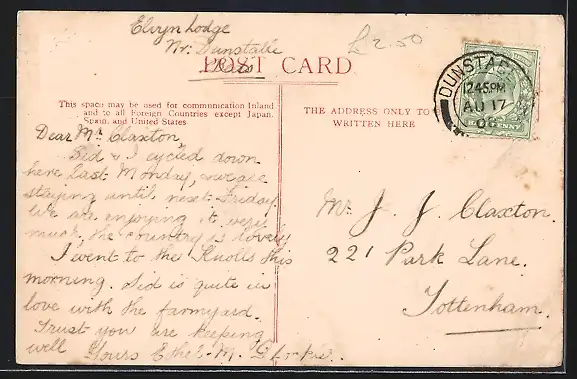 Elvyn Lodge
Nr. Dunstable
Beds
£2.50
POST CARD
This space may be used for communication Inland
and to all Foreign Countries except Japan,
Spain, and United States
THE ADDRESS ONLY TO
WRITTEN HERE
DUNSTABLE
1245PM
AU 17
06
Dear Mr Claxton,
Sid & I cycled down
here last Monday, we are
staying until next Friday
We are enjoying it very
much, the country is lovely
I went to the Knolls this
morning. Sid is quite in
love with the farmyard.
Trust you are keeping
well Yours Ethel M.
Mr J. J. Claxton.
221 Park Lane.
Tottenham.